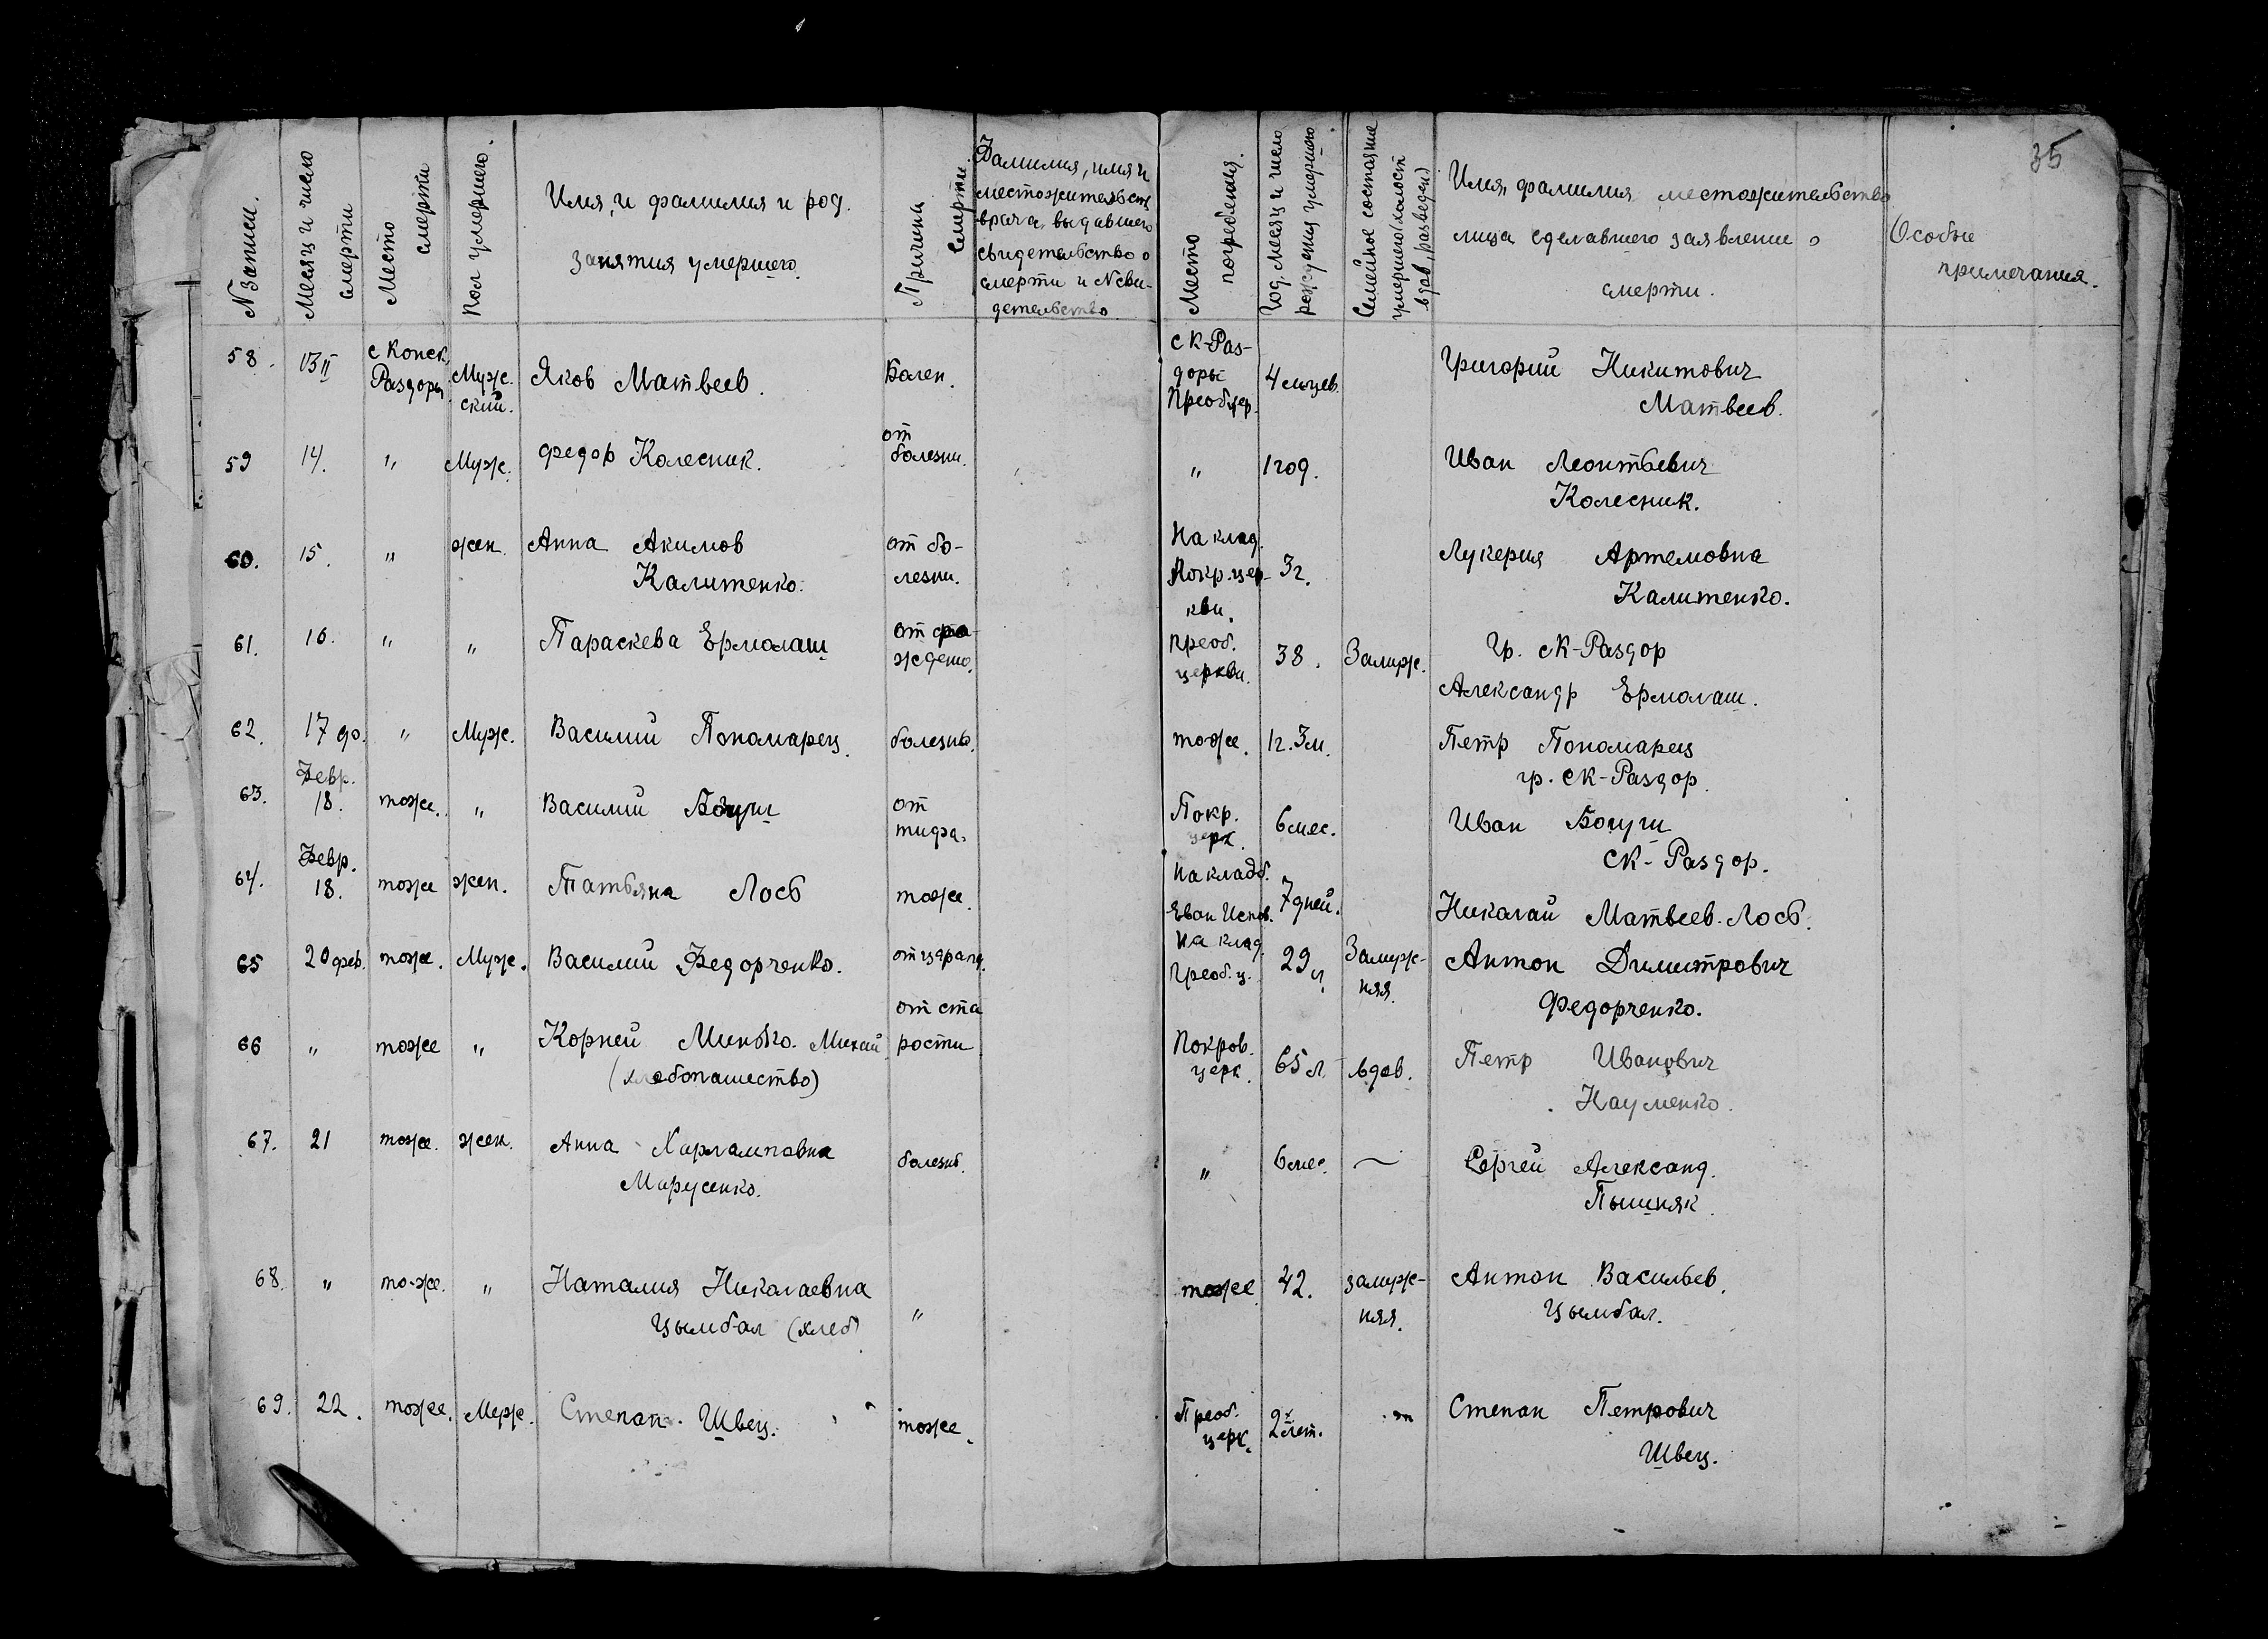 35
№ записи.
Месяц и число смерти
Место смерти
Пол умершего.
Имя, и фамилия и род.
занятия умершего.
Причина смерти.
Фамилия, имя и
местожительств
врача, выдавшего
свидетельство о
смерти и № сви-
детельство
Место погребения.
Год, месяц и число
рождения умершего
Семейное состояние
умершего (холост
вдов, разведен)
Имя, фамилия местожительство
лица сделавшего заявление о
смерти.
Особые
примечания.
58. 13 II с Конск. Раздоры Муж. ский. Яков Матвеев. Болен. с К-Раз- доры Преоб. цер. 4 м-цев. Григорий Никитович
Матвеев.
59 14. " Муж. Федор Колесник. от болезни. " 1 год. Иван Леонтьевич
Колесник.
60. 15. " жен. Анна Акимов Калитенко. от бо- лезни. На клад. Покр. цер- кви. 3 г. Лукерия Артемовна
Калитенко.
61. 16. " " Параскева Ермолаш Преоб. церкви. 38. Замуж. Гр. с К-Раздор
Александр Ермолаш.
62. 17 до. " Муж. Василий Пономарец. болезнь. тоже. 1 г. 3 м. Петр Пономарец
гр. с К-Раздор.
63. Февр. 18. тоже. " Василий от тифа. Покр. церк. 6 мес. Иван
с К-Раздор.
64. Февр. 18. тоже жен. Татьяна Лось тоже. На кладб. Еван 7 дней. Николай Матвеев. Лось.
65 20 фев. тоже. Муж. Василий Федорченко. На клад. Преоб. ц. 29 л. Замуж- няя. Антон Димитрович
Федорченко.
66 " тоже " Корней Минько. (хлебопашество) от ста рости Покров. церк. 65 л. вдов. Петр Иванович
Науменко.
67. 21 тоже. жен. Анна Харламповна Марусенко. болезнь. " 6 мес. — Сергей Александ.
Пышняк.
68. " то-же. " Наталия Николаевна Цымбал (хлеб) " тоже 42. замуж- няя. Антон Васильев.
Цымбал.
69. 22. тоже. Муж. Степан Швец. тоже. Преоб. церк. 2х лет. Степан Петрович
Швец.